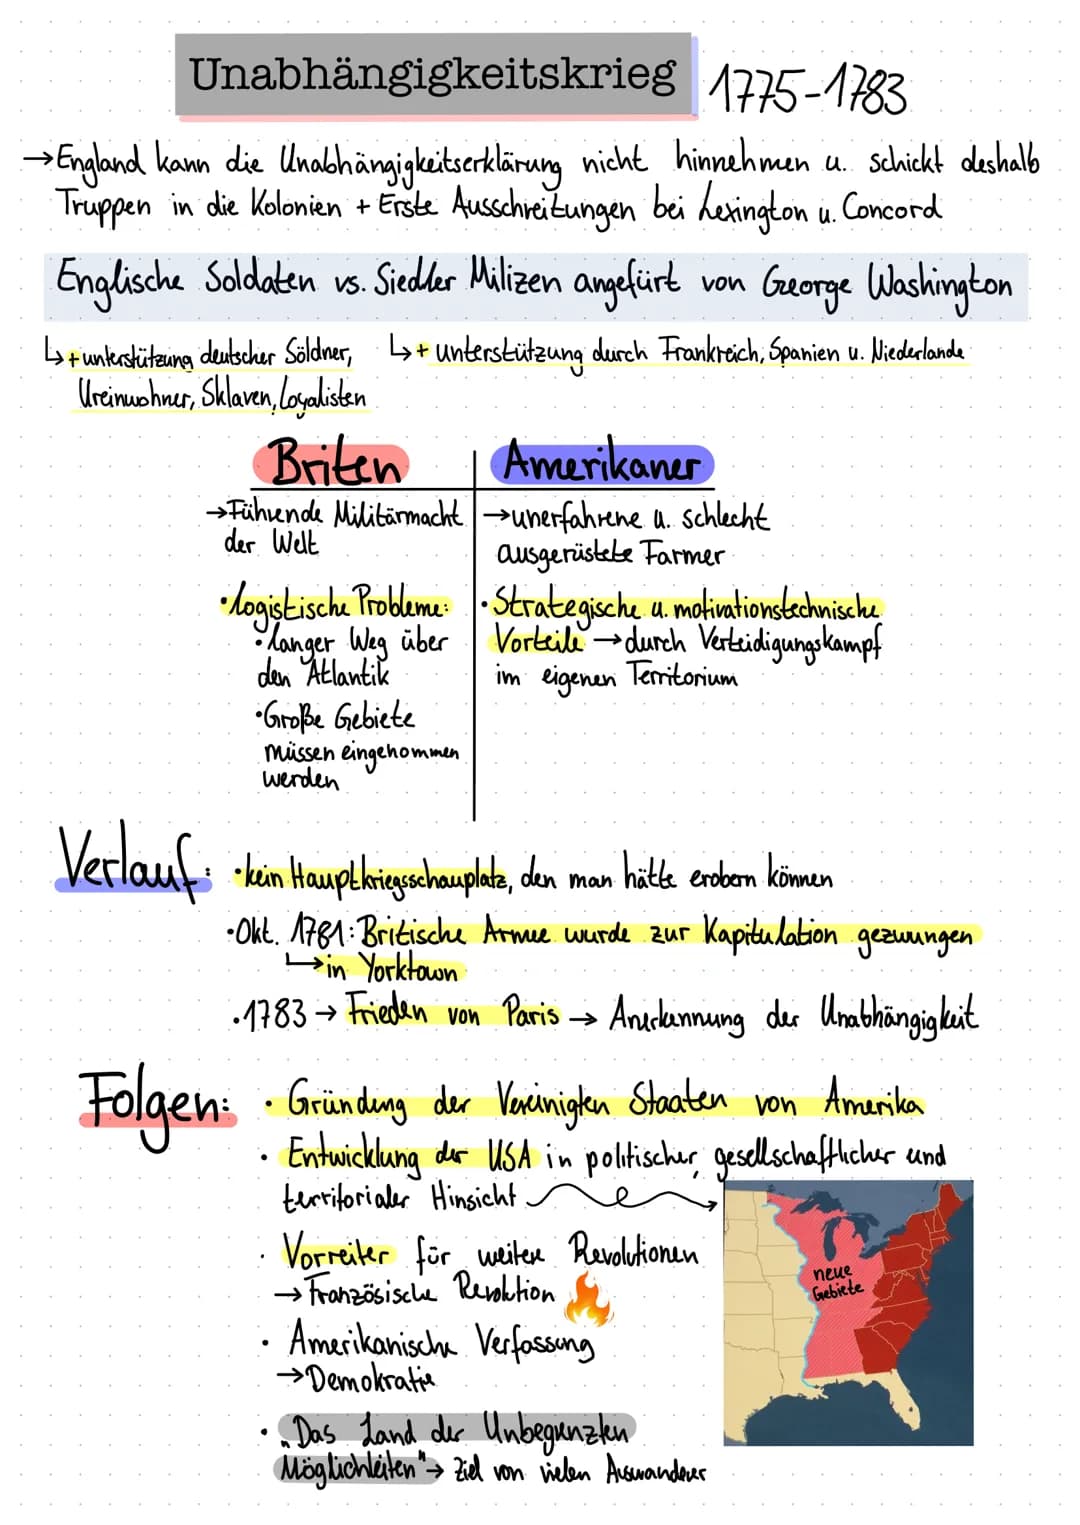 Unabhängigkeitskrieg 1775-1783
→England kann die Unabhängigkeitserklärung nicht hinnehmen u. schickt deshalb
Truppen in die Kolonien + Erste Ausschreitungen bei Lexington u. Concord
Englische Soldaten vs. Siedler Milizen angefürt von George Washington
↳+unterstützung deutscher Söldner,
Ureinwohner, Sklaven, Loyalisten
↳+ unterstützung durch Frankreich, Spanien u. Niederlande
Briten
→Führende Militärmacht
der Welt
•logistische Probleme:
•langer Weg über
den Atlantik
•Große Gebiete
müssen eingenommen
werden
Amerikaner
→unerfahrene u. schlecht
ausgerüstete Farmer
•Strategische u. motivationstechnische
Vorteile →durch Verteidigungskampf
im eigenen Territorium
Verlauf: •kein Hauptkriegsschauplatz, den man hätte erobern können
•Okt. 1781: Britische Armee wurde zur Kapitulation gezwungen
↳in Yorktown
•1783 → Frieden von Paris → Anerkennung der Unabhängigkeit
Folgen: • Gründung der Vereinigten Staaten von Amerika
• Entwicklung der USA in politischer, gesellschaftlicher und
territorialer Hinsicht
• Vorreiter für weitere Revolutionen
→ Französische Revolution 🔥
• Amerikanische Verfassung
→Demokratie
• „Das Land der Unbegrenzten
Möglichkeiten"→ Ziel von vielen Auswanderer
neue
Gebiete